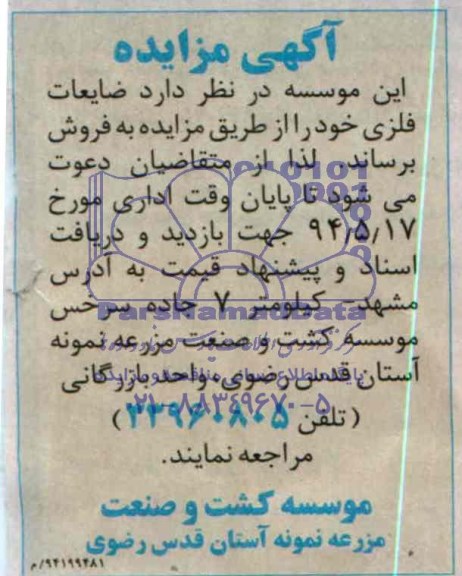 آگهی مزایده
این موسسه در نظر دارد ضایعات
فلزی خود را از طریق مزایده به فروش
برساند. لذا از متقاضیان دعوت
می شود تا پایان وقت اداری مورخ
۹۴/۵/۱۷ جهت بازدید و دریافت
اسناد و پیشنهاد قیمت به آدرس
مشهد- کیلومتر ۷ جاده سرخس
موسسه کشت و صنعت مزرعه نمونه
آستان قدس رضوی، واحد بازرگانی
(تلفن
مراجعه نمایند.
موسسه کشت و صنعت
مزرعه نمونه آستان قدس رضوی
۹۴۱۹۹۴۸۱/م
ParsNamadData
۰۲۱-۸۸۳۴۹۶۷۰-۵